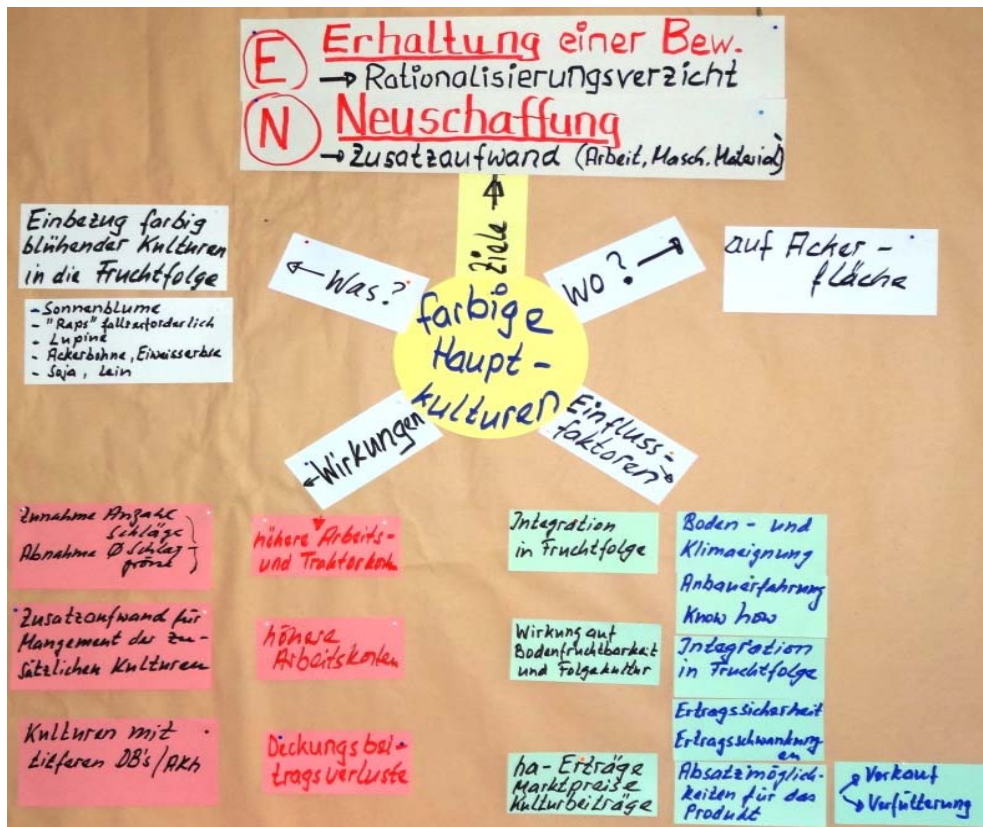 E Erhaltung einer Bew.
→ Rationalisierungsverzicht
N Neuschaffung
→ Zusatzaufwand (Arbeit, Masch. Material)
Ziele →
Einbezug farbig
blühender Kulturen
in die Fruchtfolge
- Sonnenblume
- "Raps" fallserforderlich
- Lupine
- Ackerbohne, Eiweisserbse
- Soja, Lein
← Was?
WO? →
auf Acker-
fläche
farbige
Haupt-
kulturen
← Wirkungen
Einfluss-
faktoren →
Zunahme Anzahl
Schläge
Abnahme Ø Schlag-
grösse
Zusatzaufwand für
Mangement der zu-
sätzlichen Kulturen
Kulturen mit
tieferen DB's/AKh
höhere Arbeits-
und Traktorkosten
höhere
Arbeitskosten
Deckungsbei-
tragsverluste
Integration
in Fruchtfolge
Wirkung auf
Bodenfruchtbarkeit
und Folgekultur
ha-Erträge
Marktpreise
Kulturbeiträge
Boden- und
Klimaeignung
Anbauerfahrung
Know how
Integration
in Fruchtfolge
Ertragssicherheit
Ertragsschwankung
en
Absatzmöglich-
keiten für das
Produkt
→ Verkauf
→ Verfütterung